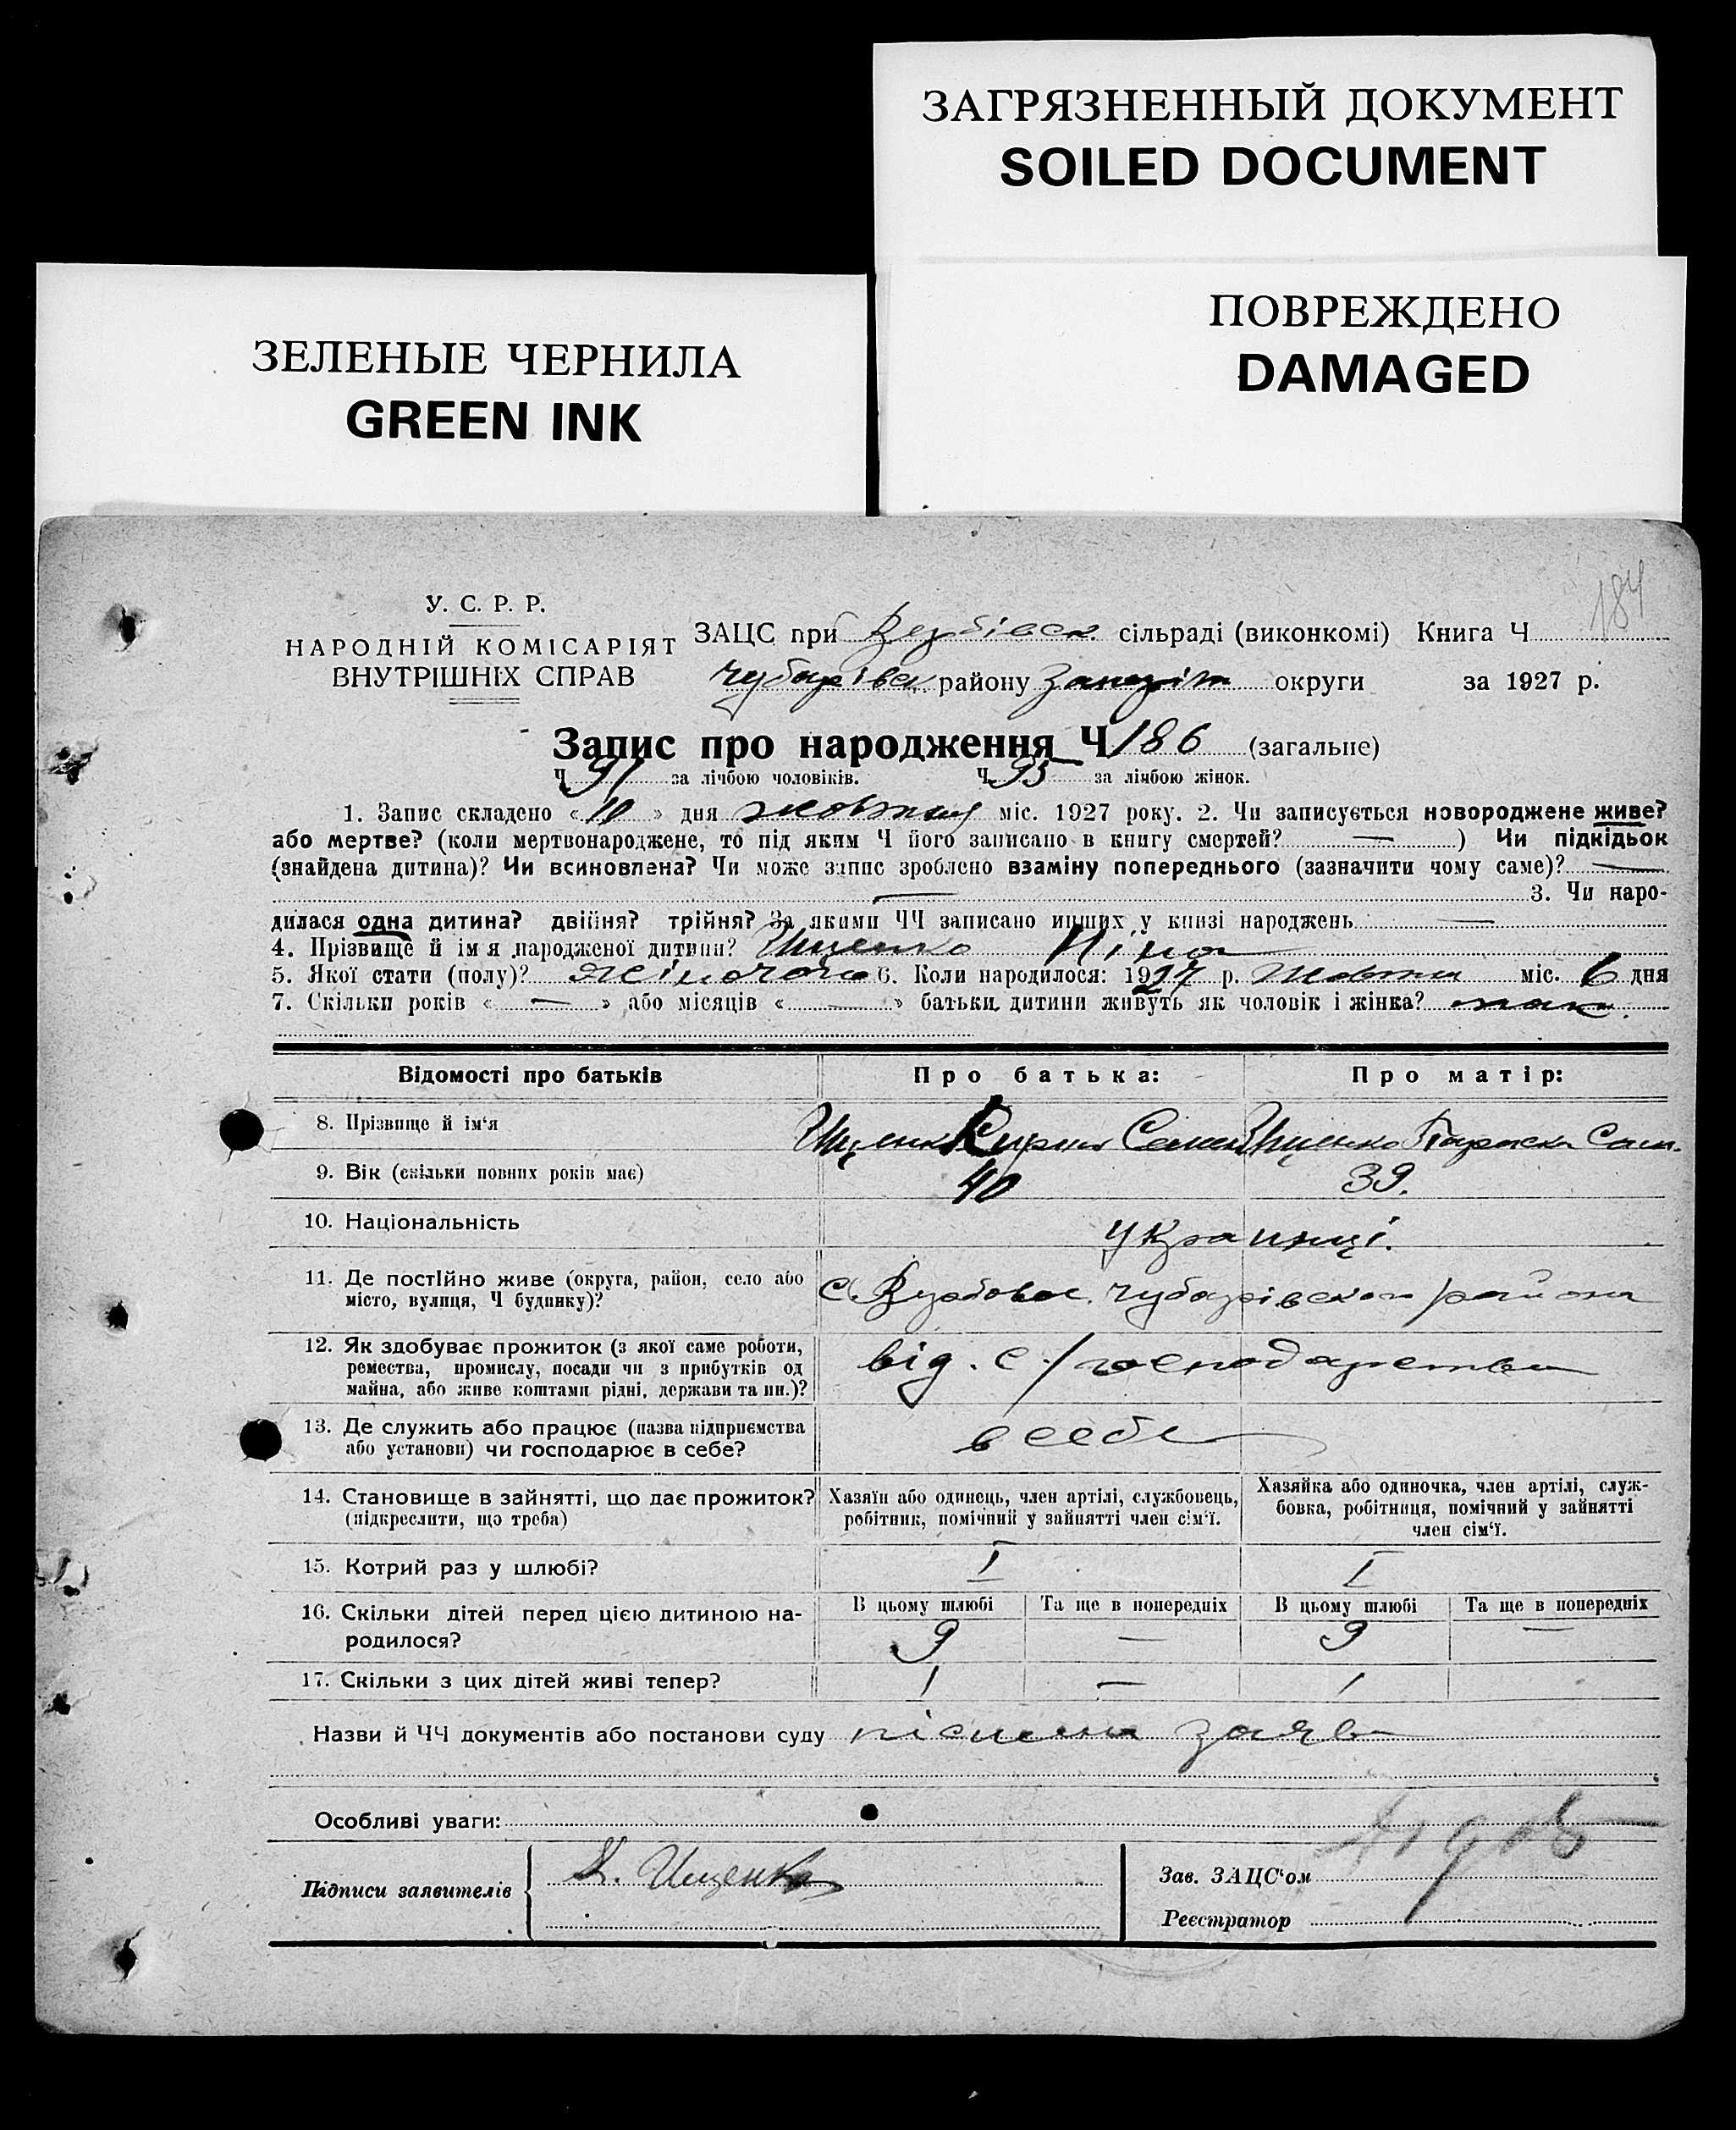 ЗАГРЯЗНЕННЫЙ ДОКУМЕНТ
SOILED DOCUMENT
ЗЕЛЕНЫЕ ЧЕРНИЛА
GREEN INK
ПОВРЕЖДЕНО
DAMAGED
184
У. С. Р. Р.
НАРОДНІЙ КОМІСАРІЯТ
ВНУТРІШНІХ СПРАВ
ЗАЦС при Вербівск. сільраді (виконкомі) Книга Ч
Чубарівск району Запоріж округи за 1927 р.
Запис про народження Ч 186 (загальне)
Ч 91 за лічбою чоловіків. Ч 95 за лічбою жінок.
1. Запис складено « 10 » дня жовтня міс. 1927 року. 2. Чи записується новороджене живе?
або мертве? (коли мертвонароджене, то під яким Ч його записано в книгу смертей? — ) Чи підкідьок
(знайдена дитина)? Чи всиновлена? Чи може запис зроблено взаміну попереднього (зазначити чому саме)? —
— 3. Чи наро-
дилася одна дитина? двійня? трійня? За якими ЧЧ записано инших у книзі народжень —
4. Прізвище й ім'я народженої дитини? Ищенко Ніна
5. Якої стати (полу)? жіночого 6. Коли народилося: 1927 р. Жовтня міс. 6 дня
7. Скільки років « — » або місяців « — » батьки дитини живуть як чоловік і жінка? так.
Відомості про батьків Про батька: Про матір:
8. Прізвище й ім'я Ищенко Кирил Семен Ищенко Параска Сам.
9. Вік (скільки повних років має) 40 39.
10. Національність українці.
11. Де постійно живе (округа, район, село або
місто, вулиця, Ч будинку)? с. Вербове. Чубарівского району
12. Як здобуває прожиток (з якої саме роботи,
ремества, промислу, посади чи з прибутків од
майна, або живе коштами рідні, держави та ин.)? від. с/господарства
13. Де служить або працює (назва підприємства
або установи) чи господарює в себе? в себе
14. Становище в зайнятті, що дає прожиток?
(підкреслити, що треба)
Хазяїн або одинець, член артілі, службовець,
робітник, помічний у зайнятті член сім'ї.
Хазяйка або одиночка, член артілі, служ-
бовка, робітниця, помічний у зайнятті
член сім'ї.
15. Котрий раз у шлюбі? I I
16. Скільки дітей перед цією дитиною на-
родилося?
В цьому шлюбі Та ще в попередніх В цьому шлюбі Та ще в попередніх
9 — 9 —
17. Скільки з цих дітей живі тепер? 1 — 1
Назви й ЧЧ документів або постанови суду пісмена заява
Особливі уваги:
Підписи заявителів К. Ищенко
Зав. ЗАЦС'ом
Реєстратор